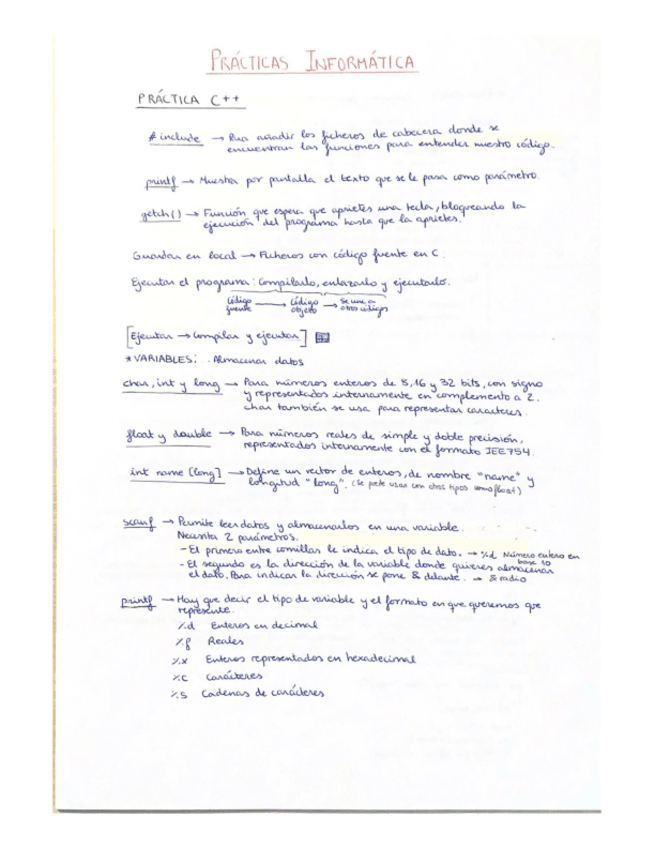 PRÁCTICAS INFORMÁTICA
PRÁCTICA C++
#include → Para añadir los ficheros de cabecera donde se
encuentran las funciones para entender nuestro código.
printf → Muestra por pantalla el texto que se le pasa como parámetro.
getch() → Función que espera que aprietes una tecla, bloqueando la
ejecución del programa hasta que la aprietes.
Guardar en local → Ficheros con código fuente en C.
Ejecutar el programa: Compilarlo, enlazarlo y ejecutarlo.
Código fuente → Código objeto → Se une a otros códigos
[Ejecutar → Compilar y ejecutar]
* VARIABLES: Almacenar datos
char, int y long → Para números enteros de 8, 16 y 32 bits, con signo
y representados internamente en complemento a 2.
char también se usa para representar caracteres.
float y double → Para números reales de simple y doble precisión,
representados internamente con el formato IEE754.
int name [long] → Define un vector de enteros, de nombre "name" y
longitud "long". (Se puede usar con otros tipos como float)
scanf → Permite leer datos y almacenarlos en una variable.
Necesita 2 parámetros.
- El primero entre comillas le indica el tipo de dato. → %d Número entero en base 10
- El segundo es la dirección de la variable donde quieres almacenar
el dato. Para indicar la dirección se pone & delante. → & radio
printf → Hay que decir el tipo de variable y el formato en que queremos que
represente.
%d Enteros en decimal
%f Reales
%x Enteros representados en hexadecimal
%c Carácteres
%s Cadenas de carácteres